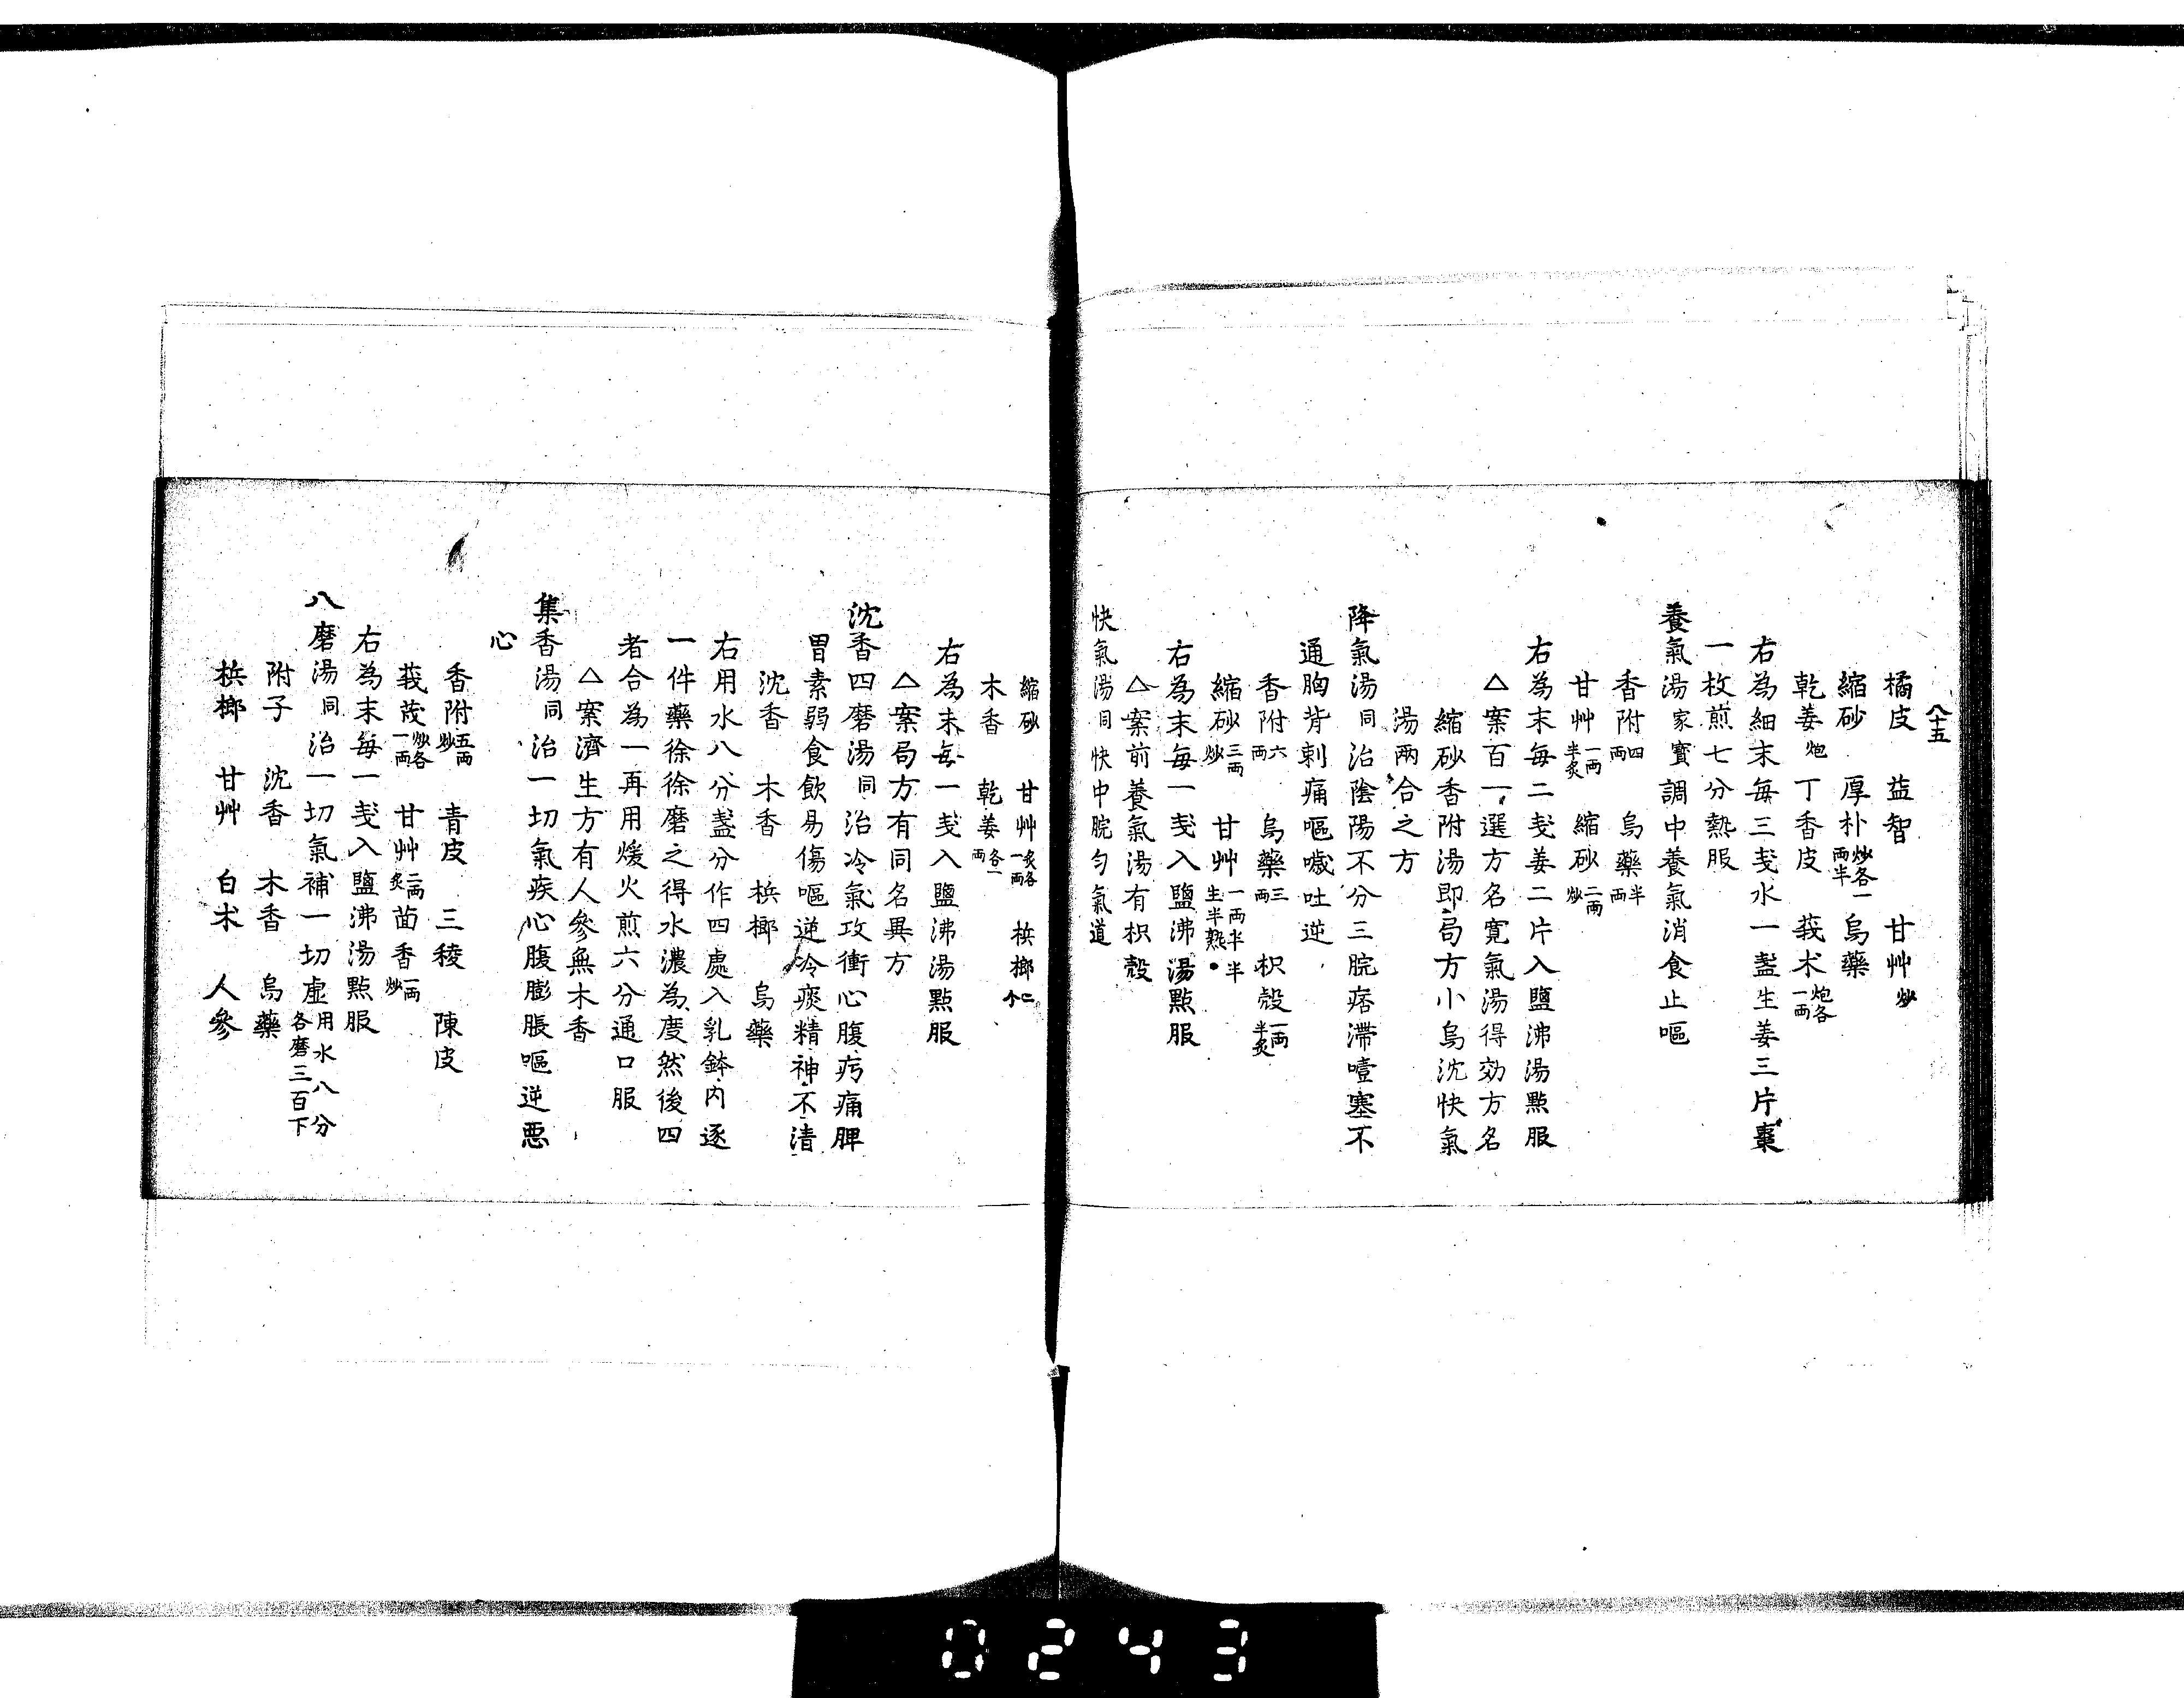 八十五
橘皮　益智　甘艸炒
縮砂　厚朴炒各一両半　烏藥
乾姜炮　丁香皮　莪朮炮各一両
右為細末每三戔水一盞生姜三片棗
一枚煎七分熱服
養氣湯家寳調中養氣消食止嘔
香附四両　烏藥半両
甘艸一両半炙　縮砂二両炒
右為末每二戔姜二片入鹽沸湯點服
△案百一選方名寛氣湯得効方名
縮砂香附湯即局方小烏沈快氣
湯兩合之方
降氣湯同治陰陽不分三脘痞滯噎塞不
通胸背刺痛嘔噦吐逆
香附六両　烏藥三両　枳殼一両半炙
縮砂三両炒　甘艸一両半半生半熟
右為末每一戔入鹽沸湯點服
△案前養氣湯有枳殼
快氣湯同快中脘勻氣道
縮砂　甘艸炙各一両　梹榔二个
木香　乾姜各一両
右為末每一戔入鹽沸湯點服
△案局方有同名異方
沈香四磨湯同治冷氣攻衝心腹㽱痛脾
胃素弱食飲易傷嘔逆冷痰精神不清
沈香　木香　梹榔　烏藥
右用水八分盞分作四處入乳鉢内逐
一件藥徐徐磨之得水濃為度然後四
者合為一再用煖火煎六分通口服
△案濟生方有人參無木香
集香湯同治一切氣疾心腹膨脹嘔逆惡
心
香附五両炒　青皮　三稜　陳皮
莪茂炒各一両　甘艸二両炙　茴香一両炒
右為末每一戔入鹽沸湯點服
八磨湯同治一切氣補一切虛用水八分各磨三百下
附子　沈香　木香　烏藥
梹榔　甘艸　白朮　人參
0243